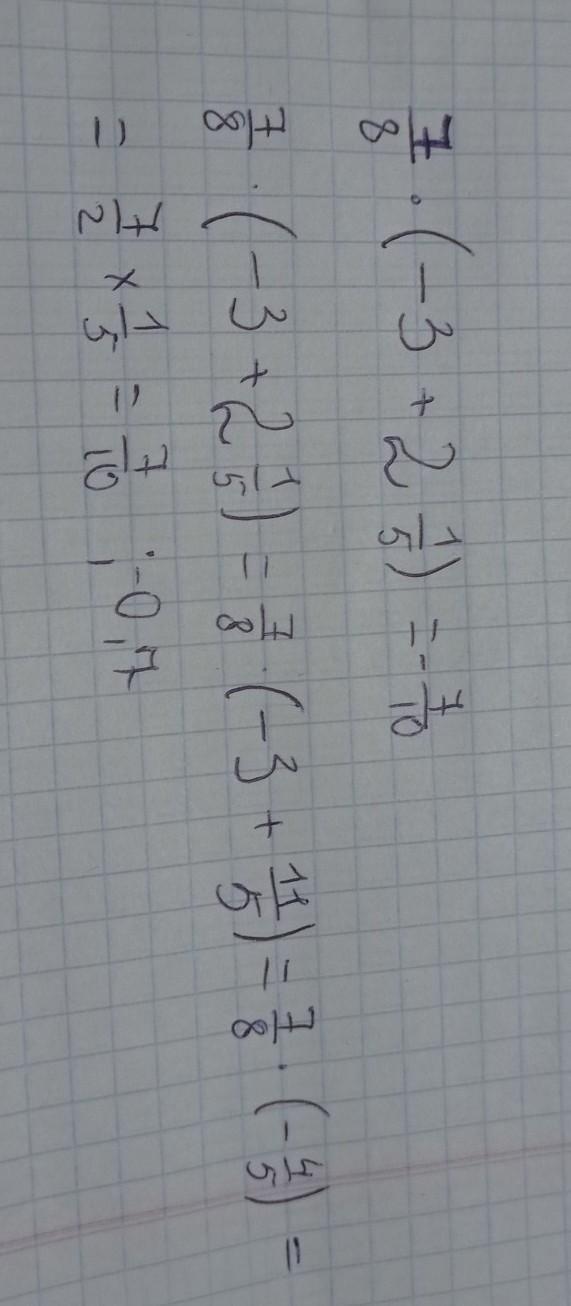 7/8 · (-3 + 2 1/5) = - 7/10
7/8 · (-3 + 2 1/5) = 7/8 · (-3 + 11/5) = 7/8 · (-4/5) =
= 7/2 × 1/5 = 7/10 ; -0,7